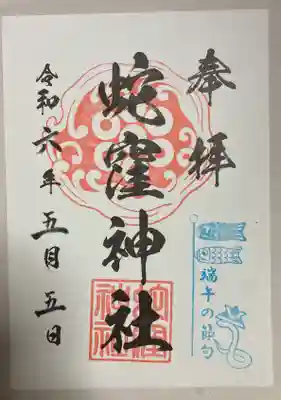 奉拝
蛇窪神社
蛇窪
神社
令和六年五月五日
端午の節句